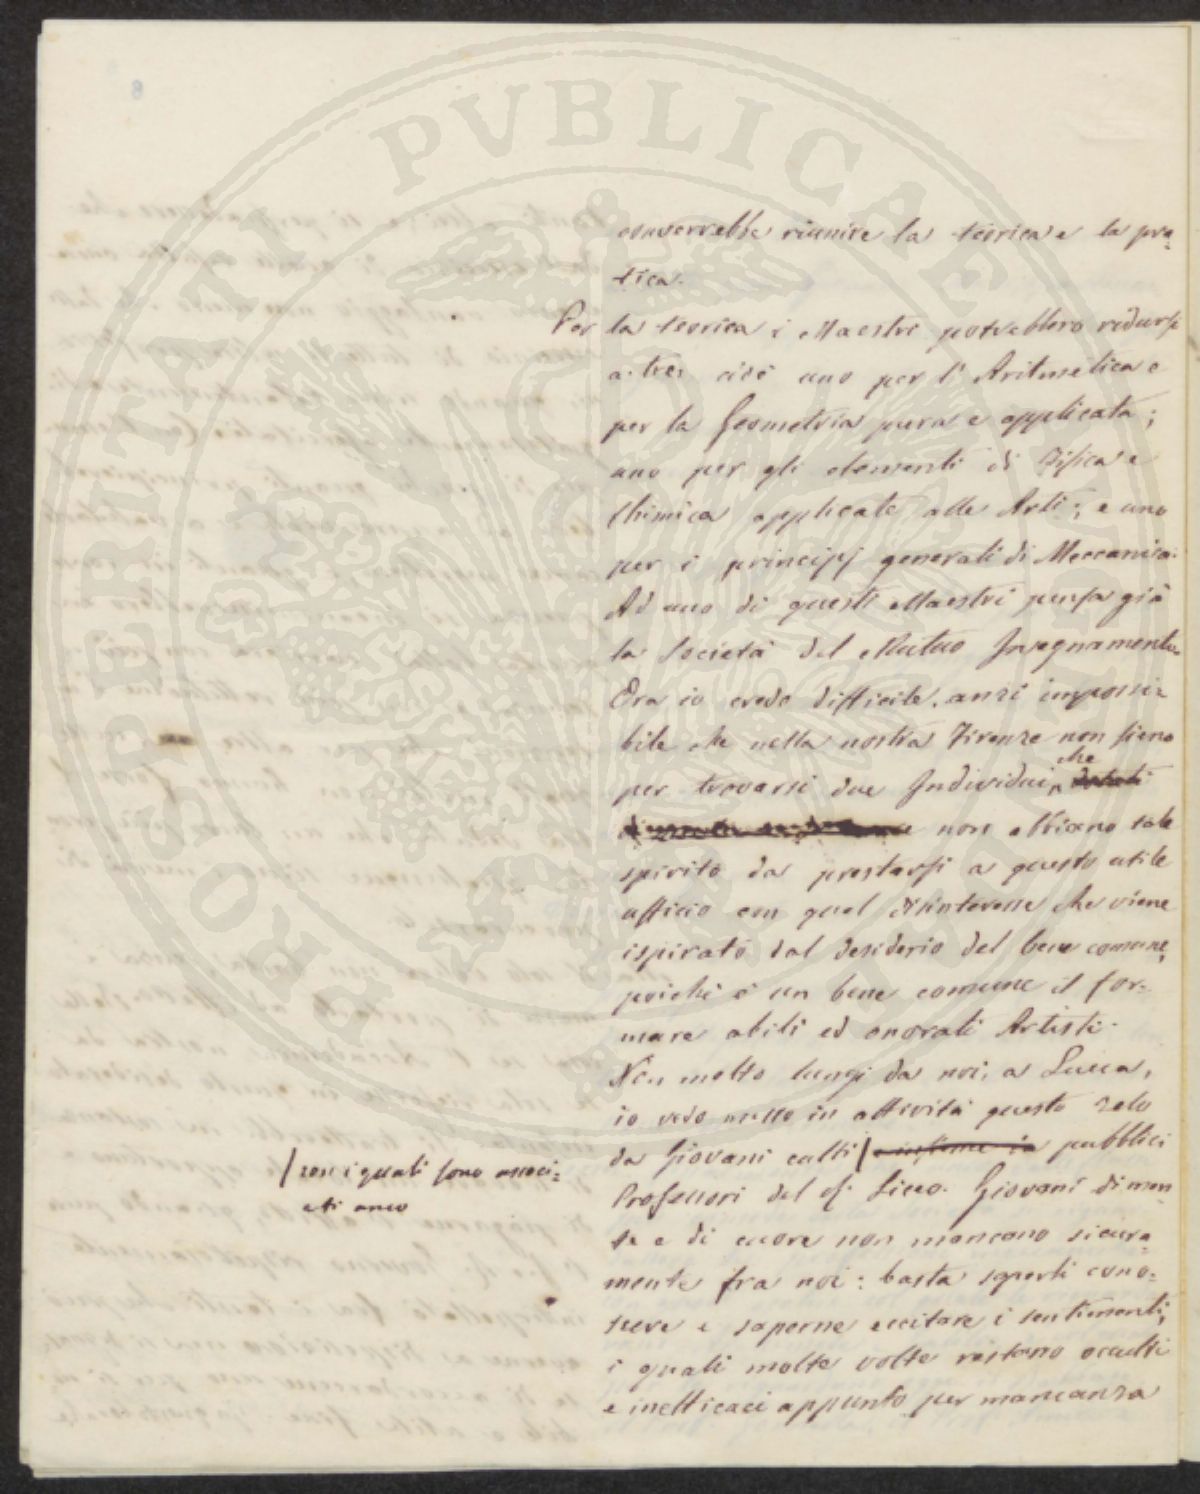 PROSPERITATI PVBLICAE
converrebbe riunire la teorica e la pra=
tica.
Per la teorica i Maestri potrebbero ridursi
a tre, cioè uno per l'Aritmetica e
per la Geometria pura e applicata;
uno per gli elementi di Fisica e
Chimica applicate alle Arti; e uno
per i principj generali di Meccanica.
Ad uno di questi Maestri pensa già
la Società del Mutuo Insegnamento.
Ora io credo difficile, anzi impossi=
bile che nella nostra Firenze non sieno
per trovarsi due Individui, che dotati
non abbiano tale
spirito da prestarsi a questo utile
ufficio con quel disinteresse che viene
ispirato dal desiderio del bene comune,
poichè è un bene comune il for=
mare abili ed onorati Artisti.
Non molto lungi da noi, a Lucca,
io vedo messo in attività questo zelo
da Giovani culti | e insieme da pubblici
| con i quali sono associ=
ati anco
Professori del Liceo. Giovani di men=
te e di cuore non mancano sicura=
mente fra noi: basta saperli cono=
scere e saperne eccitare i sentimenti,
i quali molte volte restano occulti
e inefficaci appunto per mancanza